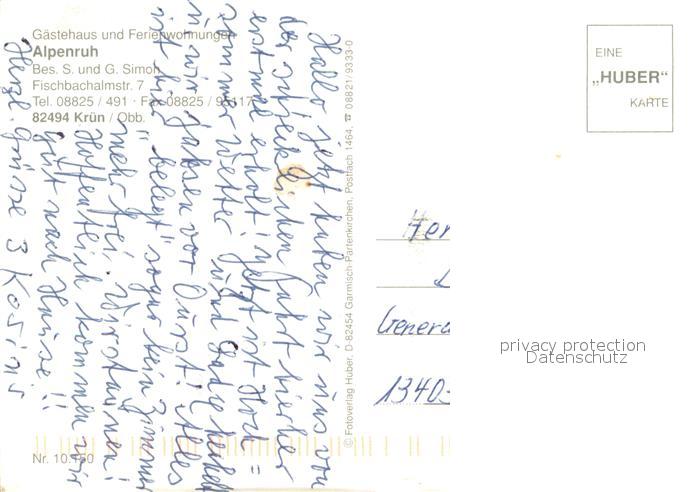 Gästehaus und Ferienwohnungen
Alpenruh
Bes. S. und G. Simon
Fischbachalmstr. 7
Tel. 08825 / 491 · Fax 08825 / 95117
82494 Krün / Obb.
Hallo jetzt haben wir uns von
der schrecklichen Fahrt hierher
erstmal erholt jetzt ist Hoch=
sommer Wetter und Gabe
u. wir Jahsen vor Durst! Alles
ist hier "belegt" sogar kein Zimmer
mehr frei. Wir staunen!
Hoffentlich kommen wir
gut nach Hause!!
Herzl. Grüsse 3 Kosinis
Nr. 10.150
© Fotoverlag Huber, D-82454 Garmisch-Partenkirchen, Postfach 1464, ☎ 08821/9333-0
EINE
„HUBER"
KARTE
Genera
1340-
privacy protection
Datenschutz